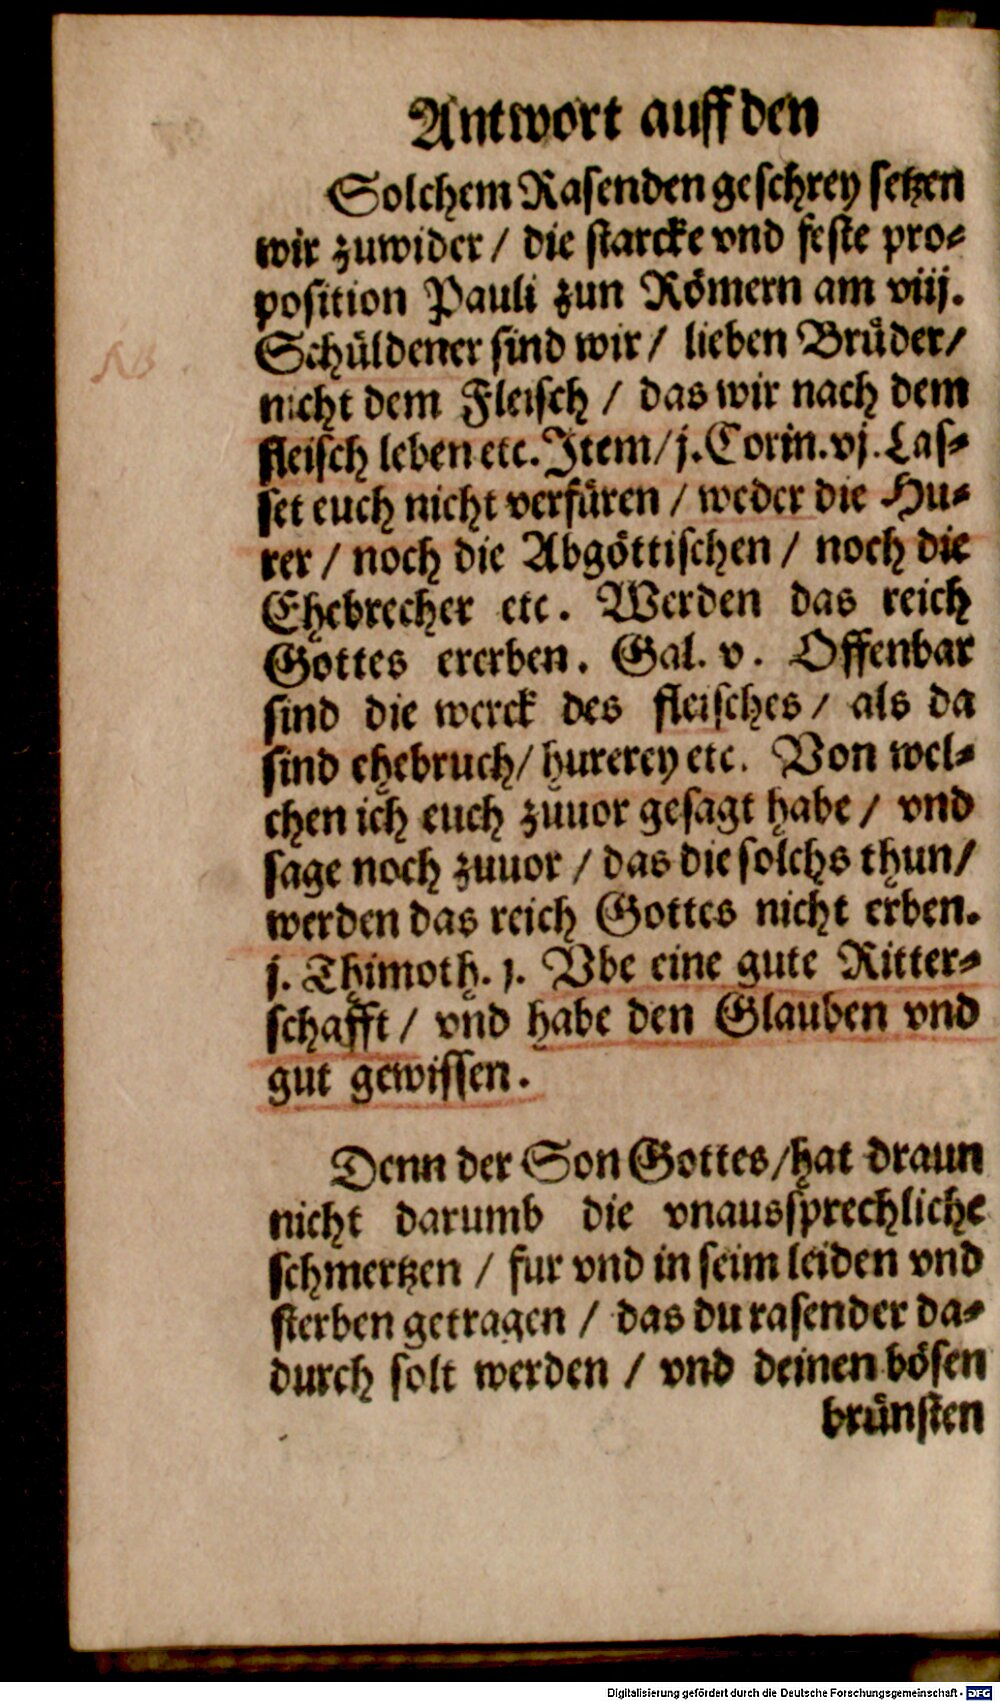 Antwort auff den
Solchem Rasenden geschrey setzen
wir zuwider / die starcke vnd feste pro-
position Pauli zun Römern am viij.
Schüldener sind wir / lieben Brüder /
nicht dem Fleisch / das wir nach dem
fleisch leben etc. Item / j. Corin. vj. Las-
set euch nicht verfüren / weder die Hu-
rer / noch die Abgöttischen / noch die
Ehebrecher etc. Werden das reich
Gottes ererben. Gal. v. Offenbar
sind die werck des fleisches / als da
sind ehebruch / hurerey etc. Von wel-
chen ich euch zuuor gesagt habe / vnd
sage noch zuuor / das die solchs thun /
werden das reich Gottes nicht erben.
j. Thimoth. j. Vbe eine gute Ritter-
schafft / vnd habe den Glauben vnd
gut gewissen.
Denn der Son Gottes / hat draun
nicht darumb die vnaussprechliche
schmertzen / fur vnd in seim leiden vnd
sterben getragen / das du rasender da-
durch solt werden / vnd deinen bösen
brünsten
NB.
Digitalisierung gefördert durch die Deutsche Forschungsgemeinschaft - DFG